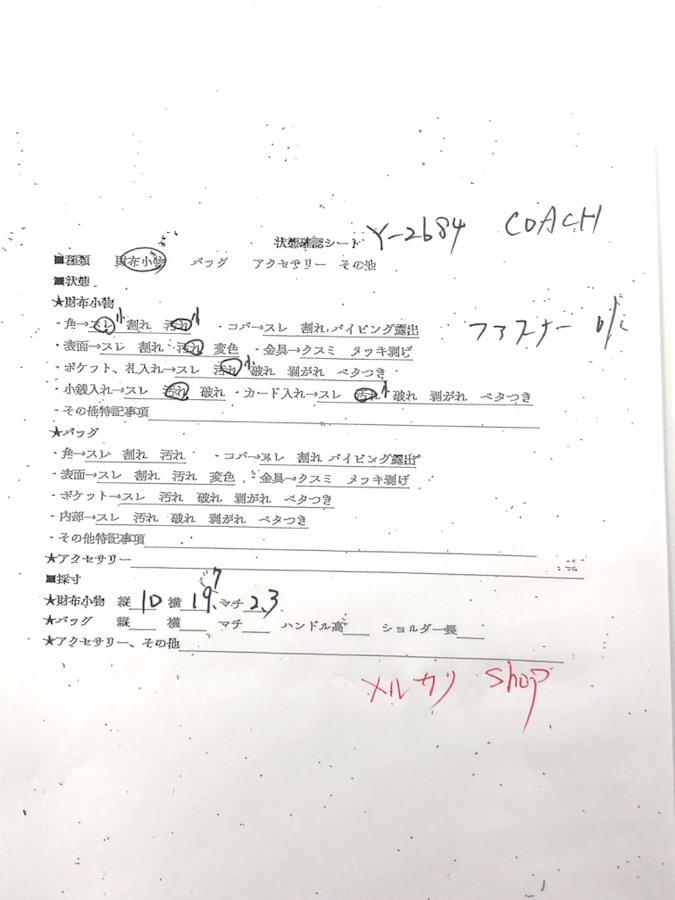 状態確認シート Y-2684 COACH
■種類 財布小物 バッグ アクセサリー その他
■状態
★財布小物
・角→スレ小 割れ 汚れ小 ・コバ→スレ 割れ パイピング露出
ファスナー
・表面→スレ 割れ 汚れ 変色 ・金具→クスミ メッキ剥げ
・ポケット、札入れ→スレ 汚れ小 破れ 剥がれ ベタつき
・小銭入れ→スレ 汚れ 破れ ・カード入れ→スレ 汚れ小 破れ 剥がれ ベタつき
・その他特記事項
★バッグ
・角→スレ 割れ 汚れ ・コバ→スレ 割れ パイピング露出
・表面→スレ 割れ 汚れ 変色 ・金具→クスミ メッキ剥げ
・ポケット→スレ 汚れ 破れ 剥がれ ベタつき
・内部→スレ 汚れ 破れ 剥がれ ベタつき
・その他特記事項
★アクセサリー
■採寸
★財布小物 縦 10 横 19.7 マチ 2.3
★バッグ 縦 横 マチ ハンドル高 ショルダー長
★アクセサリー、その他
メルカリ shop